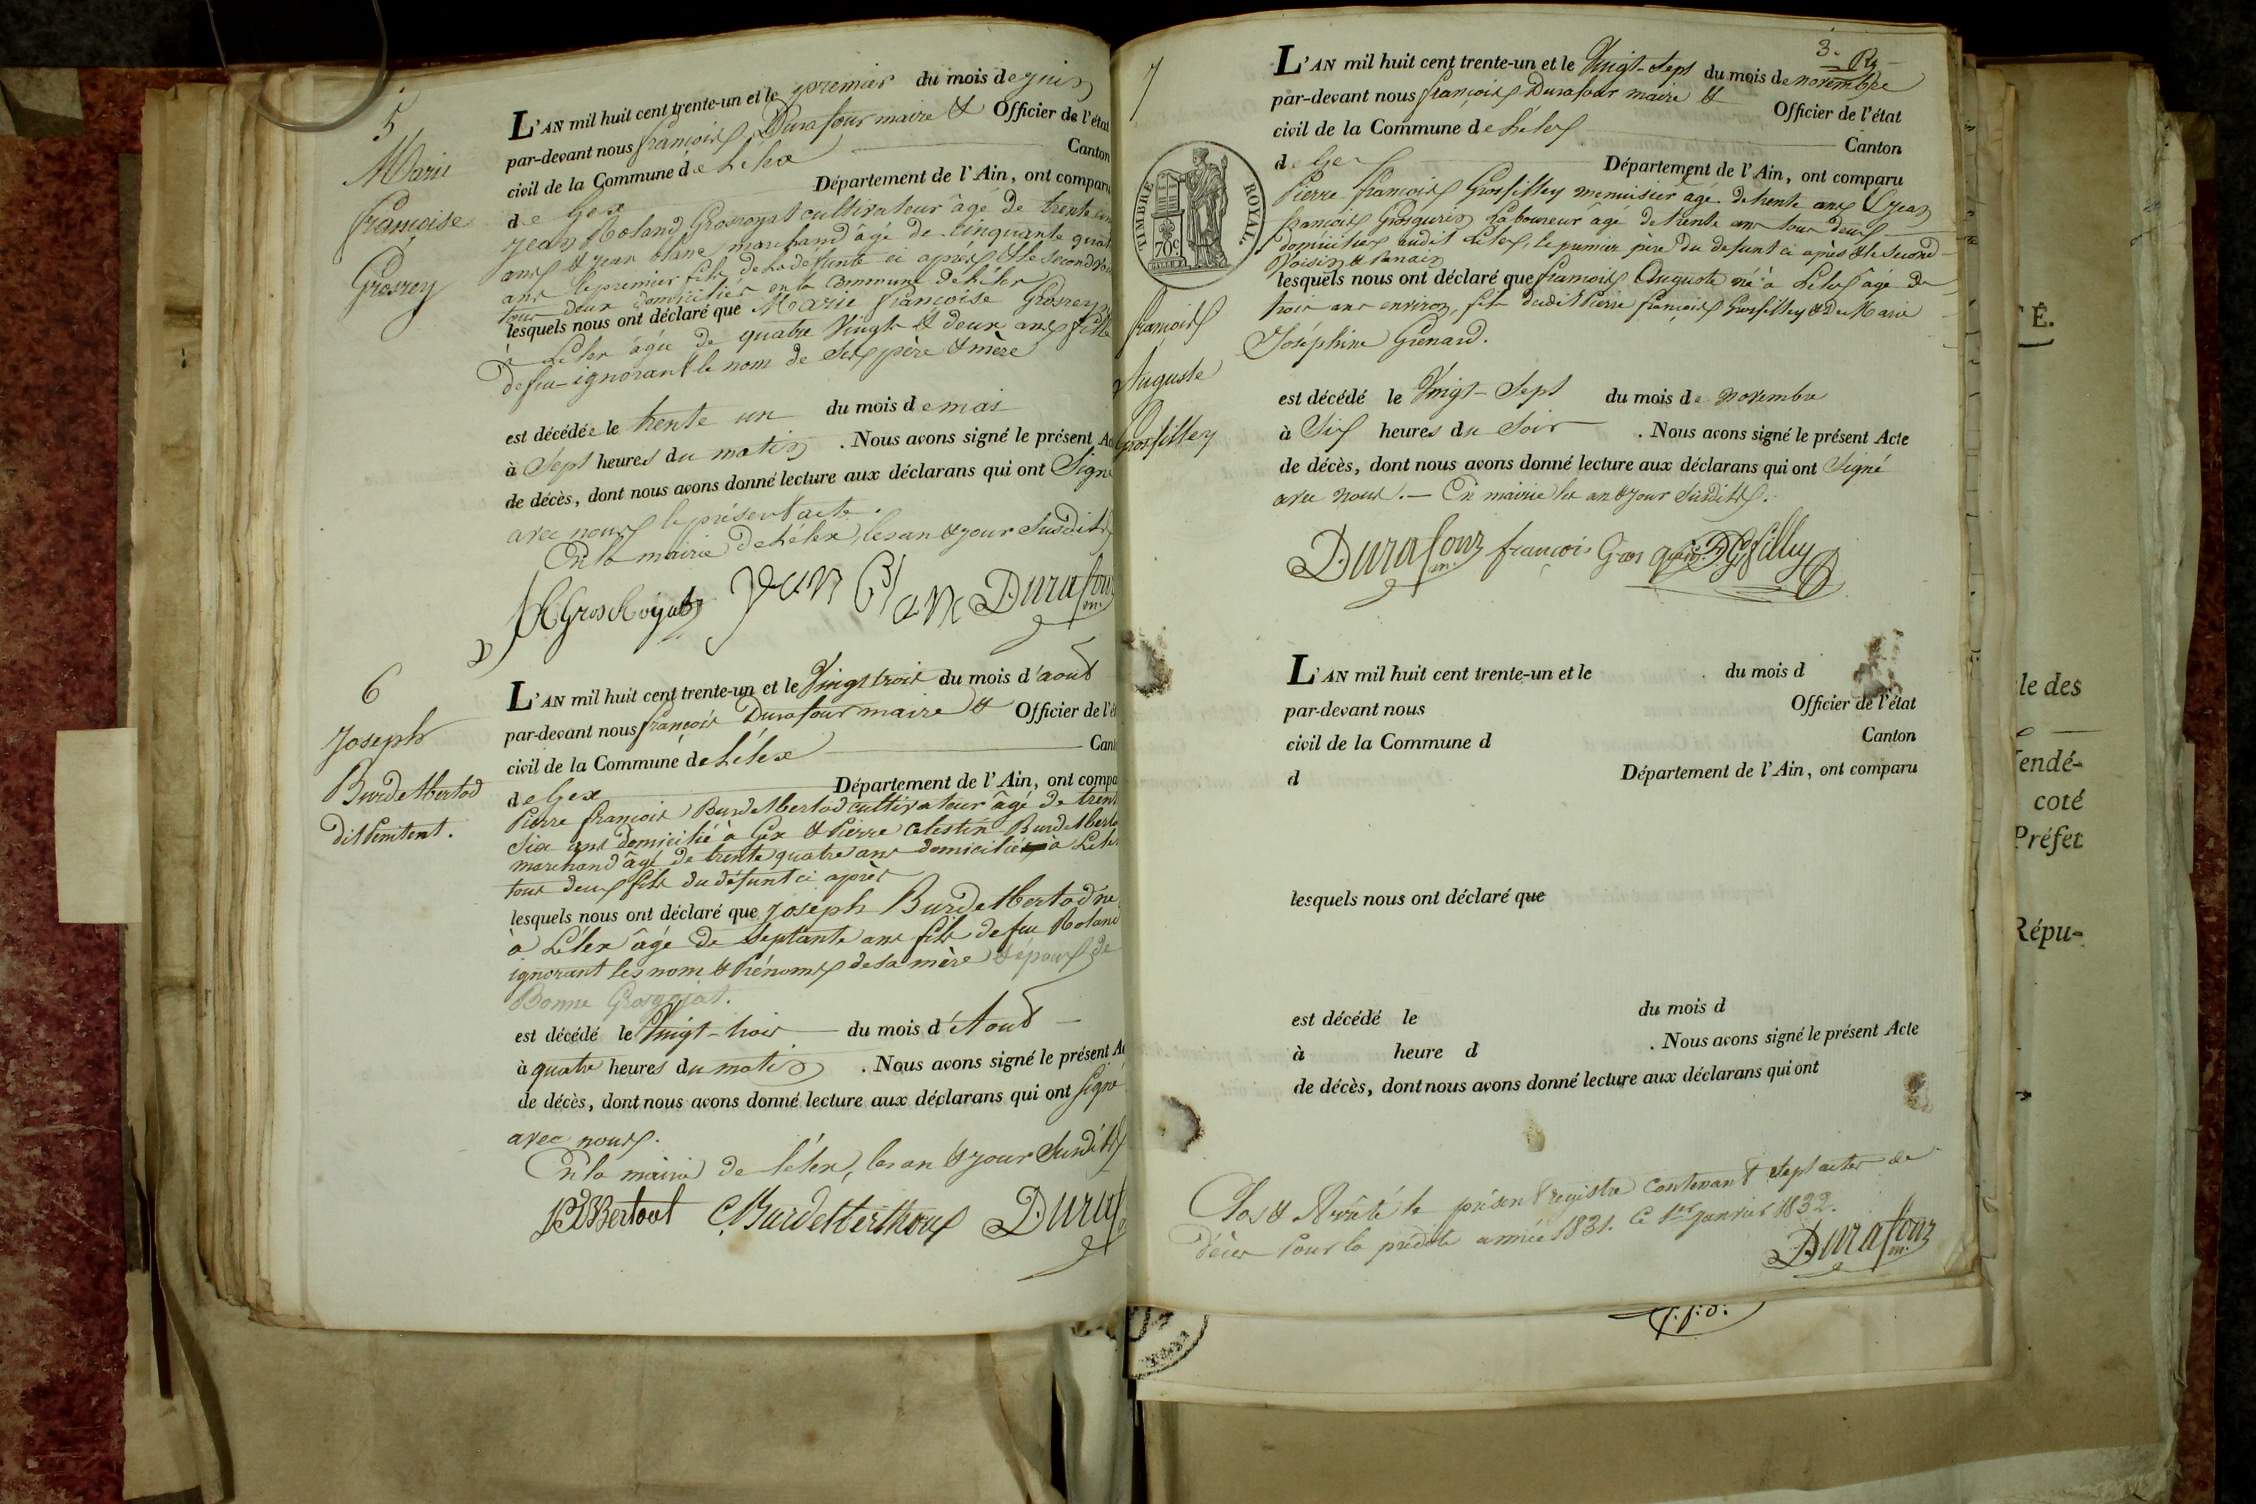 5
Marie
françoise
Grosrey
L'AN mil huit cent trente-un et le premier du mois de juin
par-devant nous françois Durafour maire & Officier de l'état
civil de la Commune de Lélex Canton
de Gex Département de l'Ain, ont comparu
Jean Roland Grosroyat cultivateur âgé de trente
ans & jean blanc marchand âgé de cinquante quat
ans le premier fils de la defunte ci après & le second
tous deux domiciliés en la Commune de Lélex
lesquels nous ont déclaré que Marie françoise Grosrey
à Lélex âgée de quatre Vingt & deux ans fille
defeu ignorant le nom de Ses père & mère
est décédée le trente un du mois de mai
à Sept heures du matin . Nous avons signé le présent Ac
de décès, dont nous avons donné lecture aux déclarans qui ont Signé
avec nous le présent acte.
En la mairie de Lélex, les an & jour Susdits
Jean Blanc Durafour m.
6
Joseph
Burdet Bertod
dit Penitent.
L'AN mil huit cent trente-un et le Vingt trois du mois d'aout
par-devant nous françois Durafour maire & Officier de l'ét
civil de la Commune de Lélex Cant
de Gex Département de l'Ain, ont compa
Pierre françois Burdet Bertod cultivateur âgé de trent
Six ans domicilié à Gex & Pierre Celestin Burdet Berto
marchand âgé de trente quatre ans domicilié à Lélex
tous deux fils du défunt ci après
lesquels nous ont déclaré que Joseph Burdet Bertod né
à Lélex âgé de Septante ans fils de feu Roland
ignorant les nom & Prénoms de sa mère & époux de
Bonne Grosgojat.
est décédé le Vingt-trois du mois d'Aout
à quatre heures du matin . Nous avons signé le présent Ac
de décès, dont nous avons donné lecture aux déclarans qui ont Signé
avec nous.
En la mairie de Lélex, les an & jour Susdits
Duraf
3. 
7
TIMBRE ROYAL.
70c.
françois
Auguste
Grosfilley
L'AN mil huit cent trente-un et le Vingt-Sept du mois de novembre
par-devant nous françois Durafour maire & Officier de l'état
civil de la Commune de Lélex Canton
de Gex Département de l'Ain, ont comparu
Pierre françois Grosfilley menuisier âgé de trente ans & jean
françois Grosgurin Laboureur âgé de trente ans tous deux
domiciliés audit Lélex, le premier père du defunt ci après & le Second
Voisin & Parain
lesquels nous ont déclaré que françois Auguste né à Lélex âgé de
trois ans environ, fils dudit Pierre françois Grosfilley & De Marie
Joséphine Grenard.
est décédé le Vingt-Sept du mois de novembre
à Six heures du Soir . Nous avons signé le présent Acte
de décès, dont nous avons donné lecture aux déclarans qui ont Signé
avec nous. — En mairie les an & jour Susdits.
Durafour m. françois Gros gurin
L'AN mil huit cent trente-un et le du mois d
par-devant nous Officier de l'état
civil de la Commune d Canton
d Département de l'Ain, ont comparu
lesquels nous ont déclaré que
est décédé le du mois d
à heure d . Nous avons signé le présent Acte
de décès, dont nous avons donné lecture aux déclarans qui ont
Clos & Arrêté le présent registre contenant Sept actes de
décès Pour la predite année 1831. Ce 1er janvier 1832.
Durafour m.
É.
le des
endé-
coté
Préfet
Répu-